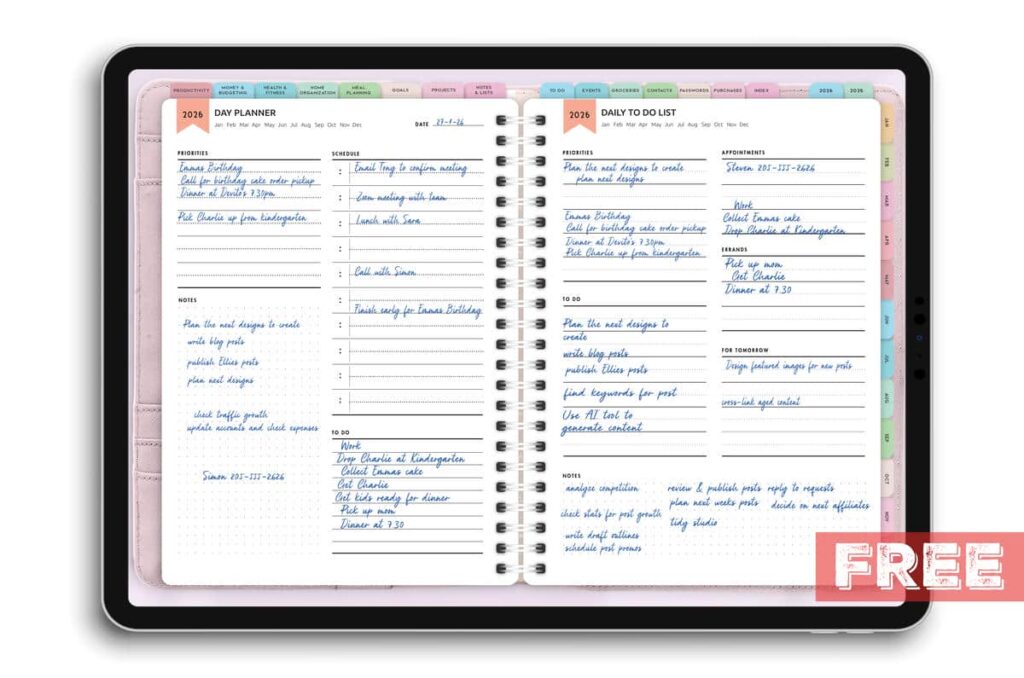 PRODUCTIVITY
MONEY & BUDGETING
HEALTH & FITNESS
HOME ORGANIZATION
MEAL PLANNING
GOALS
PROJECTS
NOTES & LISTS
TO DO
EVENTS
GROCERIES
CONTACTS
PASSWORDS
PURCHASES
INDEX
2026
2026
2026
DAY PLANNER
Jan Feb Mar Apr May Jun Jul Aug Sep Oct Nov Dec
DATE
PRIORITIES
Emmas Birthday
Call for birthday cake order pickup
Dinner at Devito's 7.30pm
Pick Charlie up from kindergarten
NOTES
Plan the next designs to create
write blog posts
publish Ellies posts
plan next designs
check traffic growth
update accounts and check expenses
Simon 201-111-2626
SCHEDULE
: Email Tong to confirm meeting
: Zoom meeting with team
: Lunch with Sara
:
: Call with Simon
: Finish early for Emmas Birthday
:
:
:
:
TO DO
Work
Drop Charlie at Kindergarten
Collect Emmas cake
Get Charlie
Get kids ready for dinner
Pick up mom
Dinner at 7.30
2026
DAILY TO DO LIST
Jan Feb Mar Apr May Jun Jul Aug Sep Oct Nov Dec
PRIORITIES
Plan the next designs to create
plan next designs
Emmas Birthday
Call for birthday cake order pickup
Dinner at Devito's 7.30pm
Pick Charlie up from kindergarten
TO DO
Plan the next designs to
create
write blog posts
publish Ellies posts
find keywords for post
Use AI tool to
generate content
APPOINTMENTS
Steven 201-111-2626
Work
Collect Emmas cake
Drop Charlie at Kindergarten
ERRANDS
Pick up mom
Get Charlie
Dinner at 7.30
FOR TOMORROW
Design featured images for new posts
cross-link aged content
NOTES
analyze competition
check stats for post growth
write draft outlines
schedule post promos
review & publish posts
plan next weeks posts
tidy studio
reply to requests
decide on next affiliates
JAN
FEB
MAR
APR
MAY
JUN
JUL
AUG
SEP
OCT
NOV
FREE